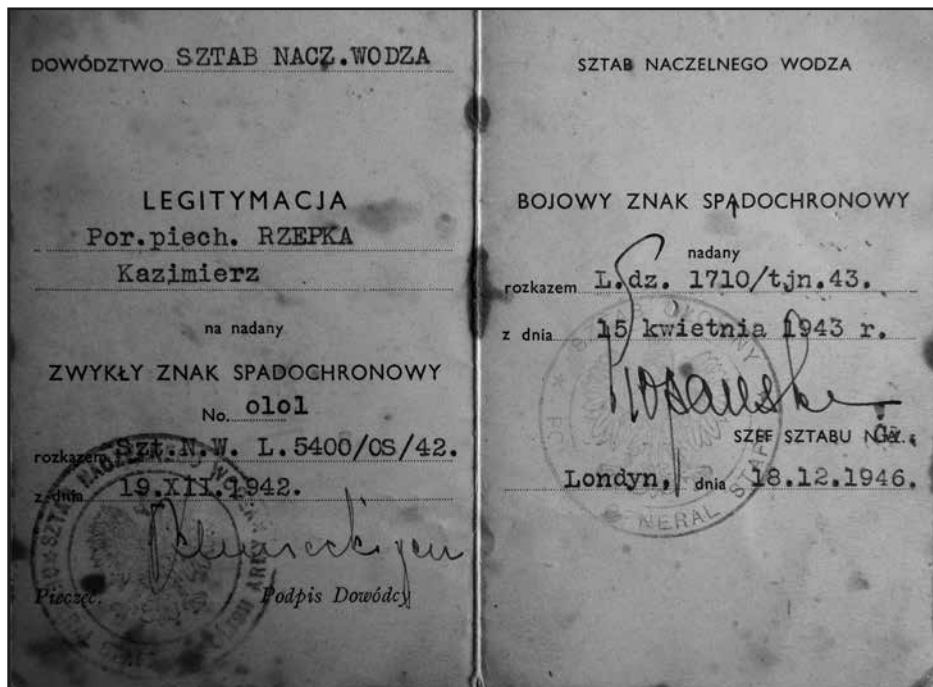 DOWÓDZTWO SZTAB NACZ.WODZA
LEGITYMACJA
Por.piech. RZEPKA
Kazimierz
na nadany
ZWYKŁY ZNAK SPADOCHRONOWY
No. 0101
rozkazem Szt.N.W. L.5400/OS/42.
z dnia 19.XII.1942.
Pieczęć. Podpis Dowódcy
SZTAB NACZELNEGO WODZA
BOJOWY ZNAK SPADOCHRONOWY
nadany
rozkazem L.dz. 1710/tjn.43.
z dnia 15 kwietnia 1943 r.
SZEF SZTABU
Londyn, dnia 18.12.1946.